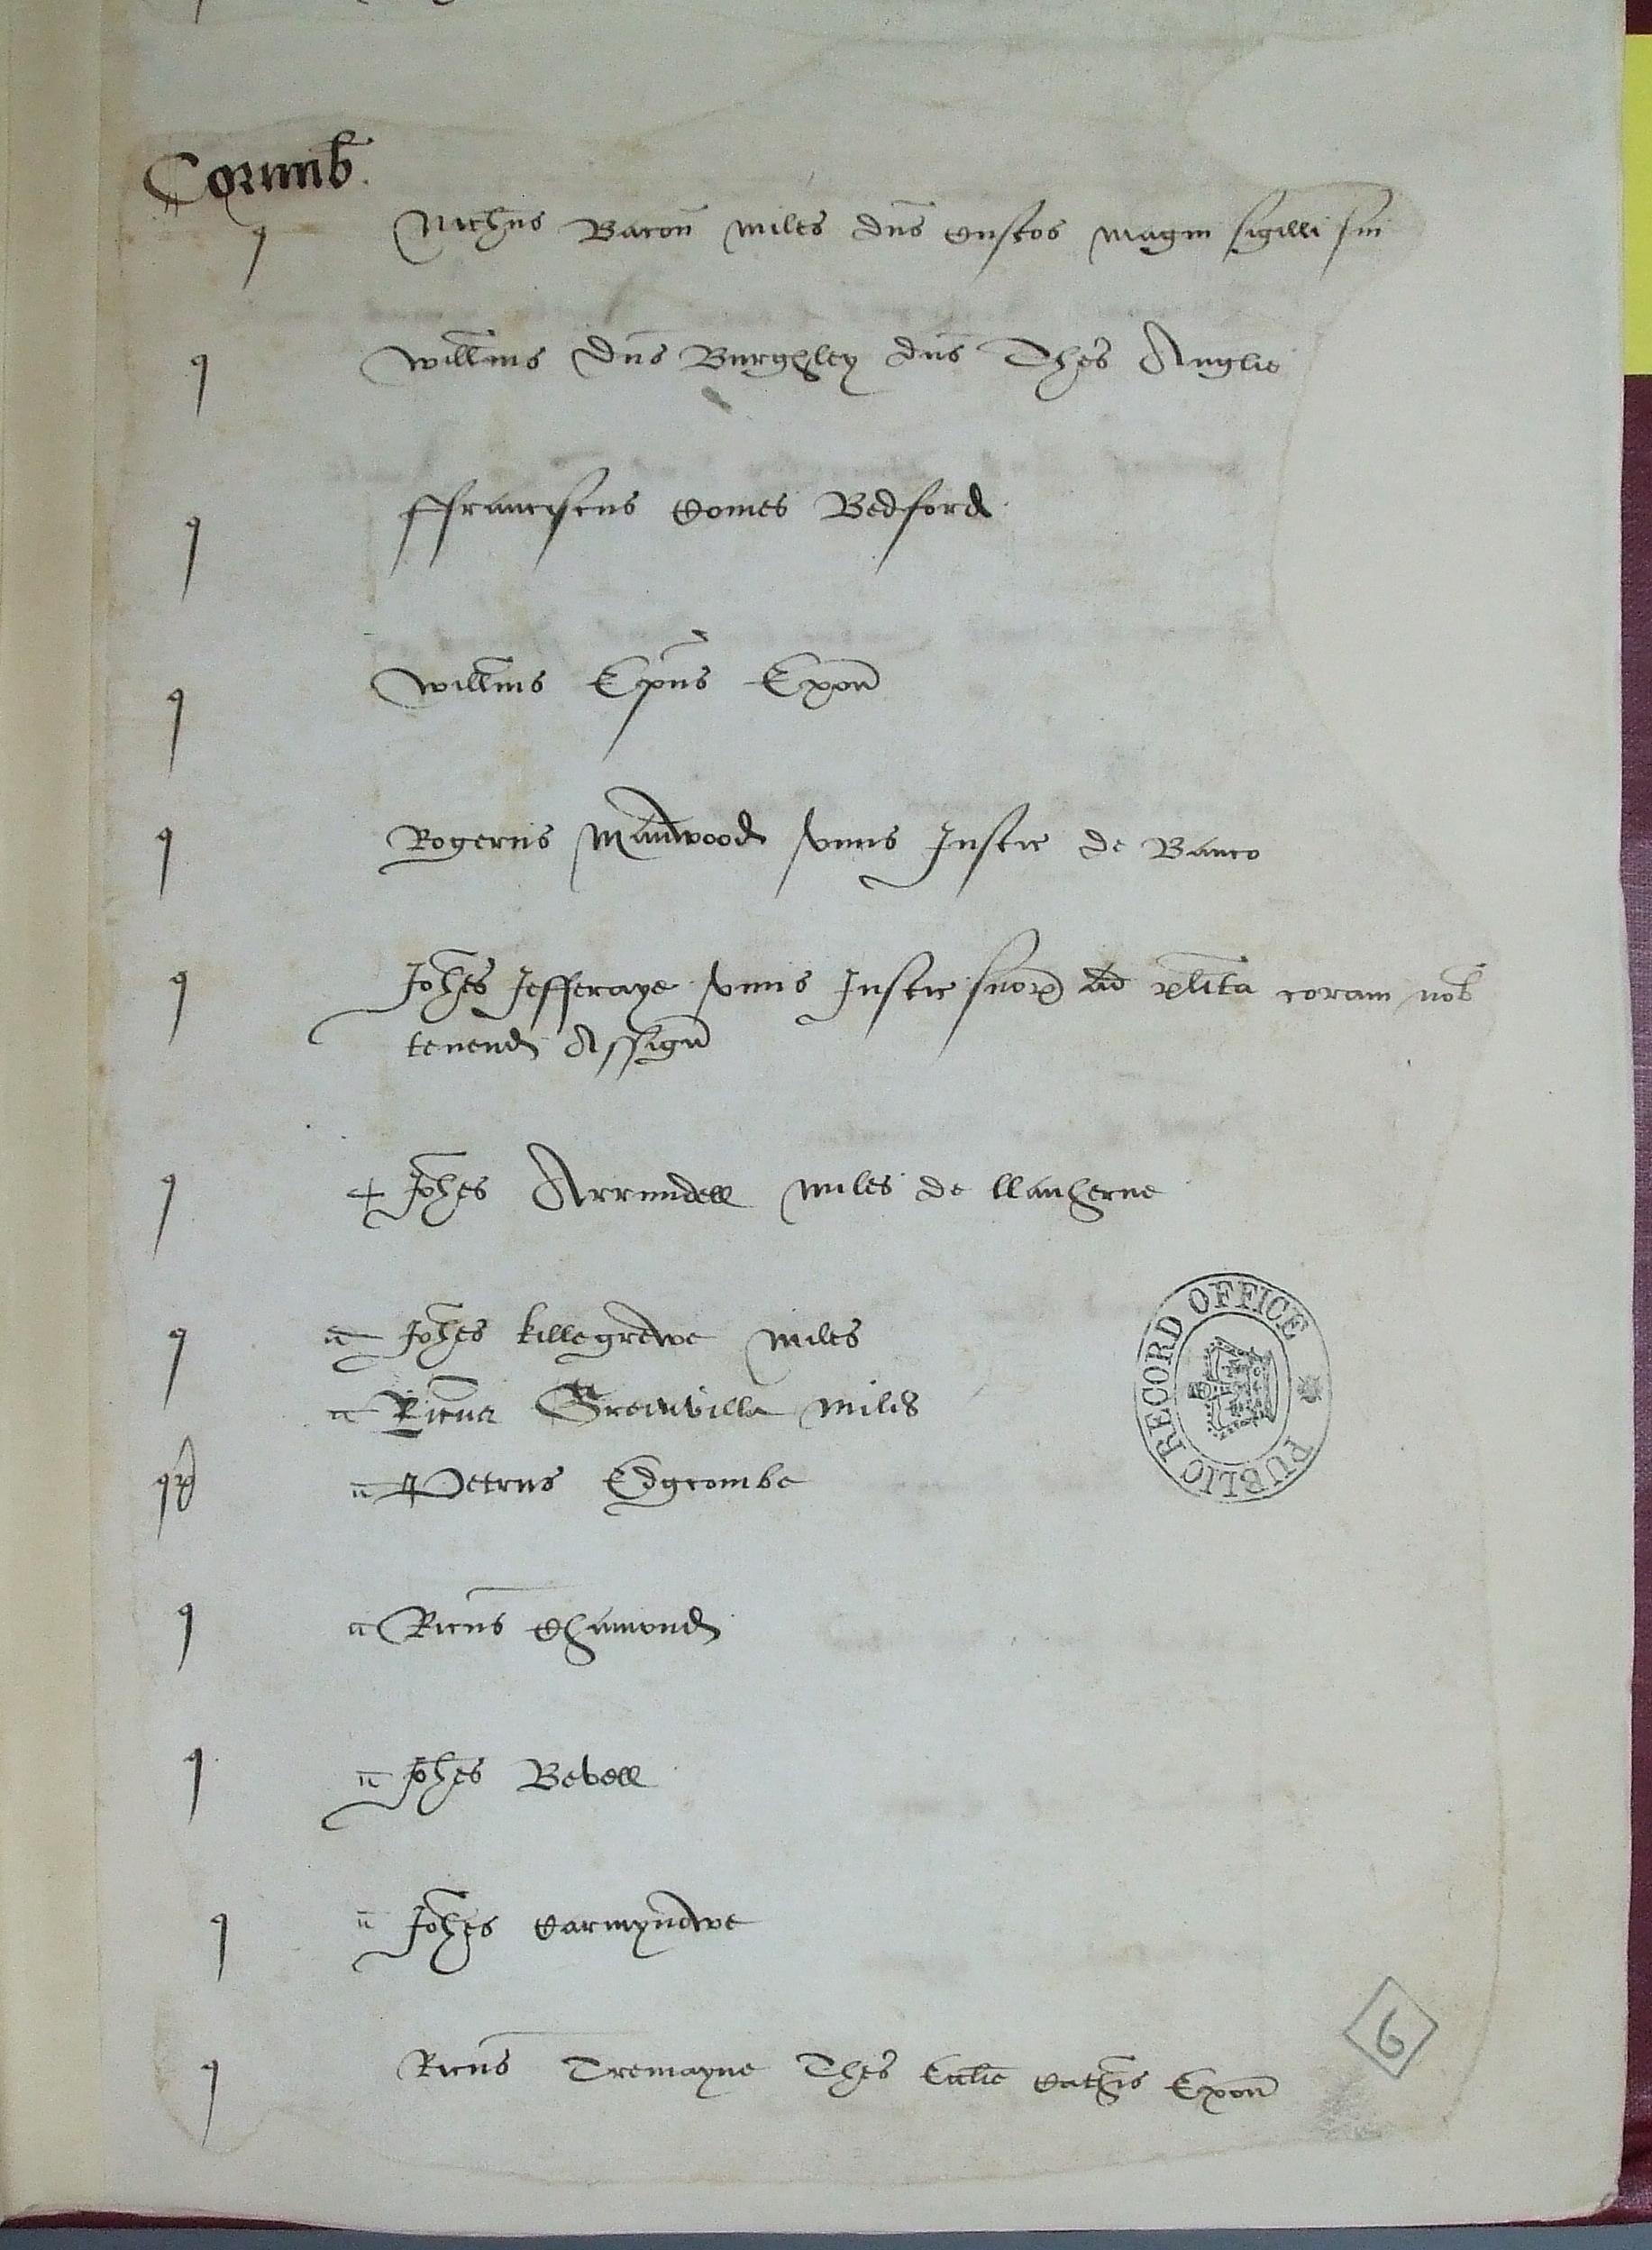 Cornub.
q Nichus Bacon miles dns Custos magni sigilli sui
q Willmus dns Burghley dns Thes Anglie
q ffranciscus Comes Bedford
q Willmus Epus Exon
q Rogerus Manwood unus Justic de Banco
q Johes Jefferaye unus Justic suor ad plita coram nob
tenend Assign
q + Johes Arrundell miles de llanherne
q Johes Killegrewe miles
Ricus Greinvilla miles
q Petrus Edgcombe
q Ricus Chamond
q Johes Bevell
q Johes Carmynowe
q Ricus Tremayne Thes Eccl​ie Cathis Exon
PUBLIC RECORD OFFICE
6